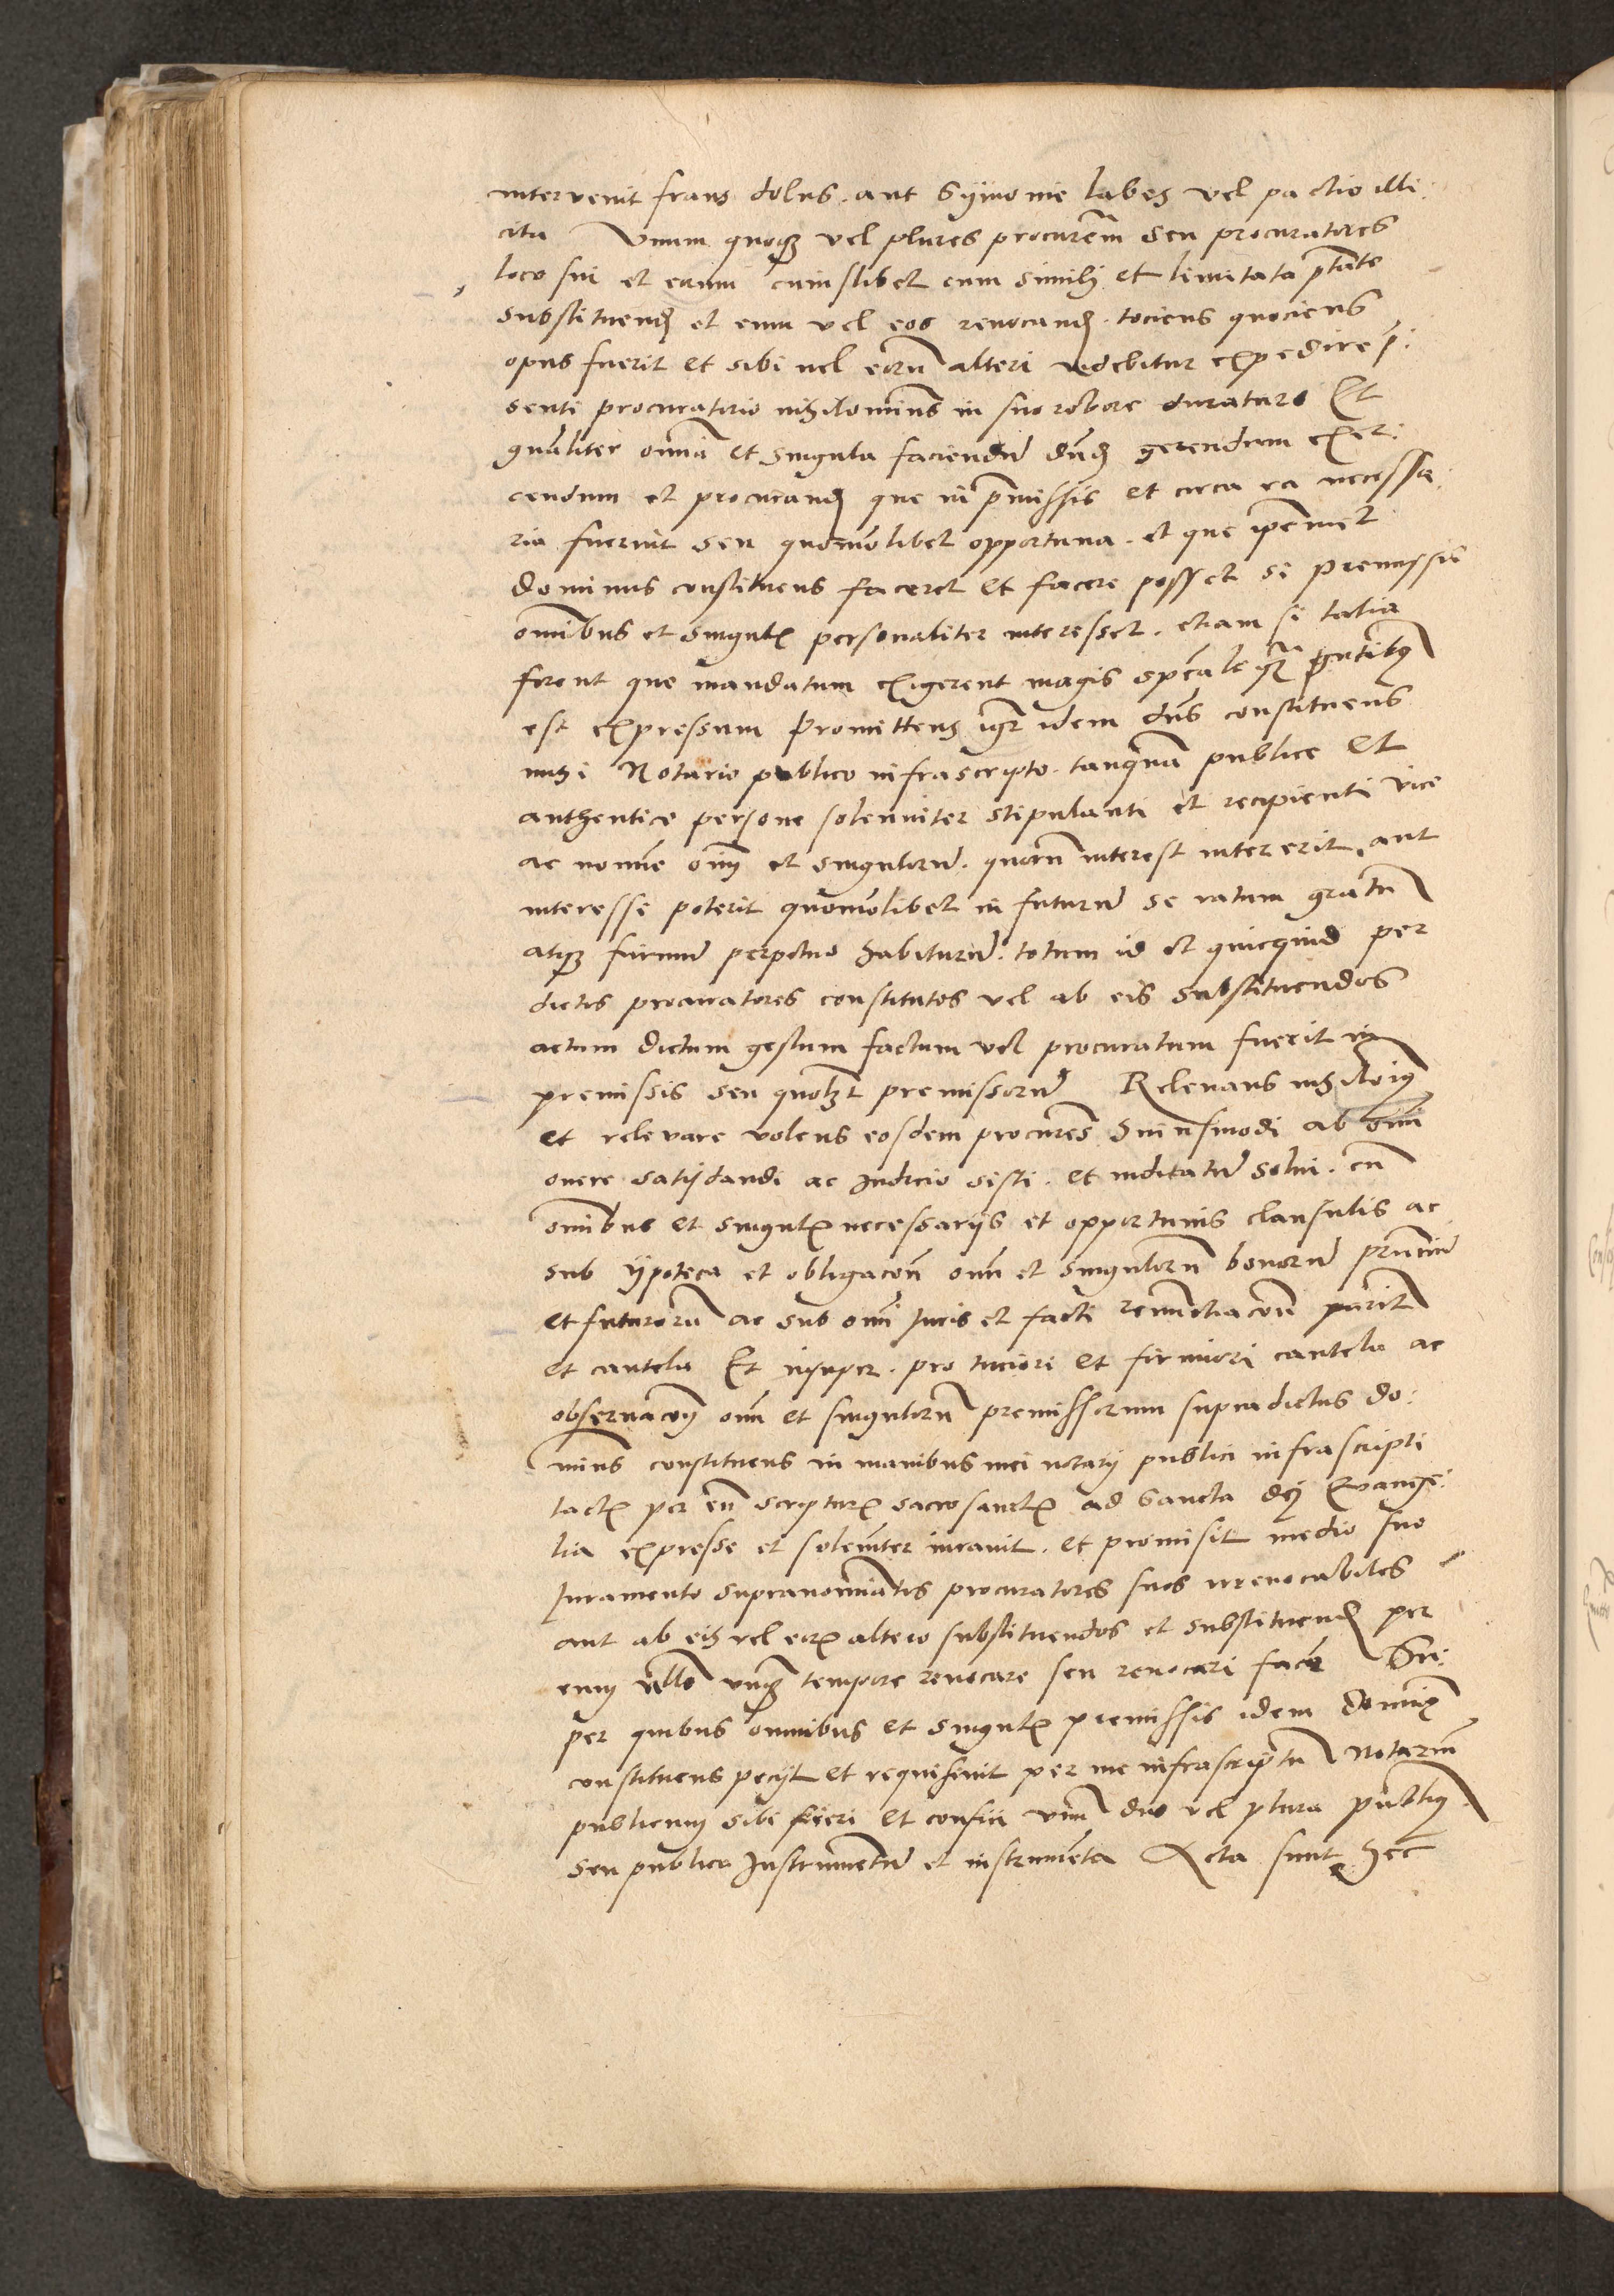 intervenit fraus dolus. aut Sÿmonie labes vel pactio illi:
cita Unum quoqz vel plures procurem̃ seu procuratores
loco sui et eorum cuiuslibet cum simili et limitata p̃tate
substituend et eum vel eos reuocand. tociens quociens
opus fuerit et sibi uel eoru͂ alteri videbitur expedire p̃:
senti procuratorio nihilominus in suo robore duraturo Et
gn̄aliter omnia et singula faciendu͂ dn̄d gerendum exer:
cendum et procurand que in p̄missis et circa ea necessa:
ria fuerint seu quomo͂libet opportuna. et que ipe͂met
dominus constituens faceret et facere posset si premissis
omībus et singul personaliter interesset. etiam si talia
forent que mandatum exigerent magis spēale q̃ p̄ntibus
est expressum Promittens igr idem dn̄s constituens
mihi Notario publico infrascripto. tanq̃ publice et
authentice persone solenniter stipulanti et recipienti vice
ac nomine om̄ et singulorum. quoru͂ interest intererit aut
interesse poterit quomo͂libet in futuru͂ se ratum gratu͂
atqz firmu͂ perpetuo habituru͂. totum id et quicquid per
dictos procuratores constitutos vel ab eis substituendos
actum dictum gestum factum vel procuratum fuerit in
premissis seu quolzt premissoru͂ Releuans nihilo͂ius
et relevare volens eosdem procures͂ huiusmodi ab omi͂
onere satisdandi ac Judicio sisti. et iudicatu͂ solui. cu͂
omībus et singul necessarijs et opportunis clausulis ac
sub ÿpoteca et obligacoē om̄ et singuloru͂ bonoru͂ pn̄tiu͂
et futuroru͂ ac sub omi͂ Juris et facti renunctiacoē parit͂
et cautela Et insuper. pro tuciori et firmiori cautela ac
obseruacoē om̄ et singuloru͂ premissorum supradictus do:
minus constituens in manibus mei notarÿ publici infrascripti
tact per eu͂ scriptur sacrosanct ad Sancta dei Evange:
lia expresse et solemniter iurauit. et promisit medio suo
Juramento supranomīatos procuratores suos irreuocabiles
aut ab eis vel eor altero substituendos et substituend per
eum ullo unq̃ tempore reuocare seu reuocari facere Su:
per quibus omnibus et singul premissis idem Dominus
constituens pecijt et requisiuit per me infrascriptu͂ Notariu͂
publicum sibi fieri et confici unu͂ duo vel plura publicu͂
seu publica Instrumentu͂ et instrumenta Acta sunt hec